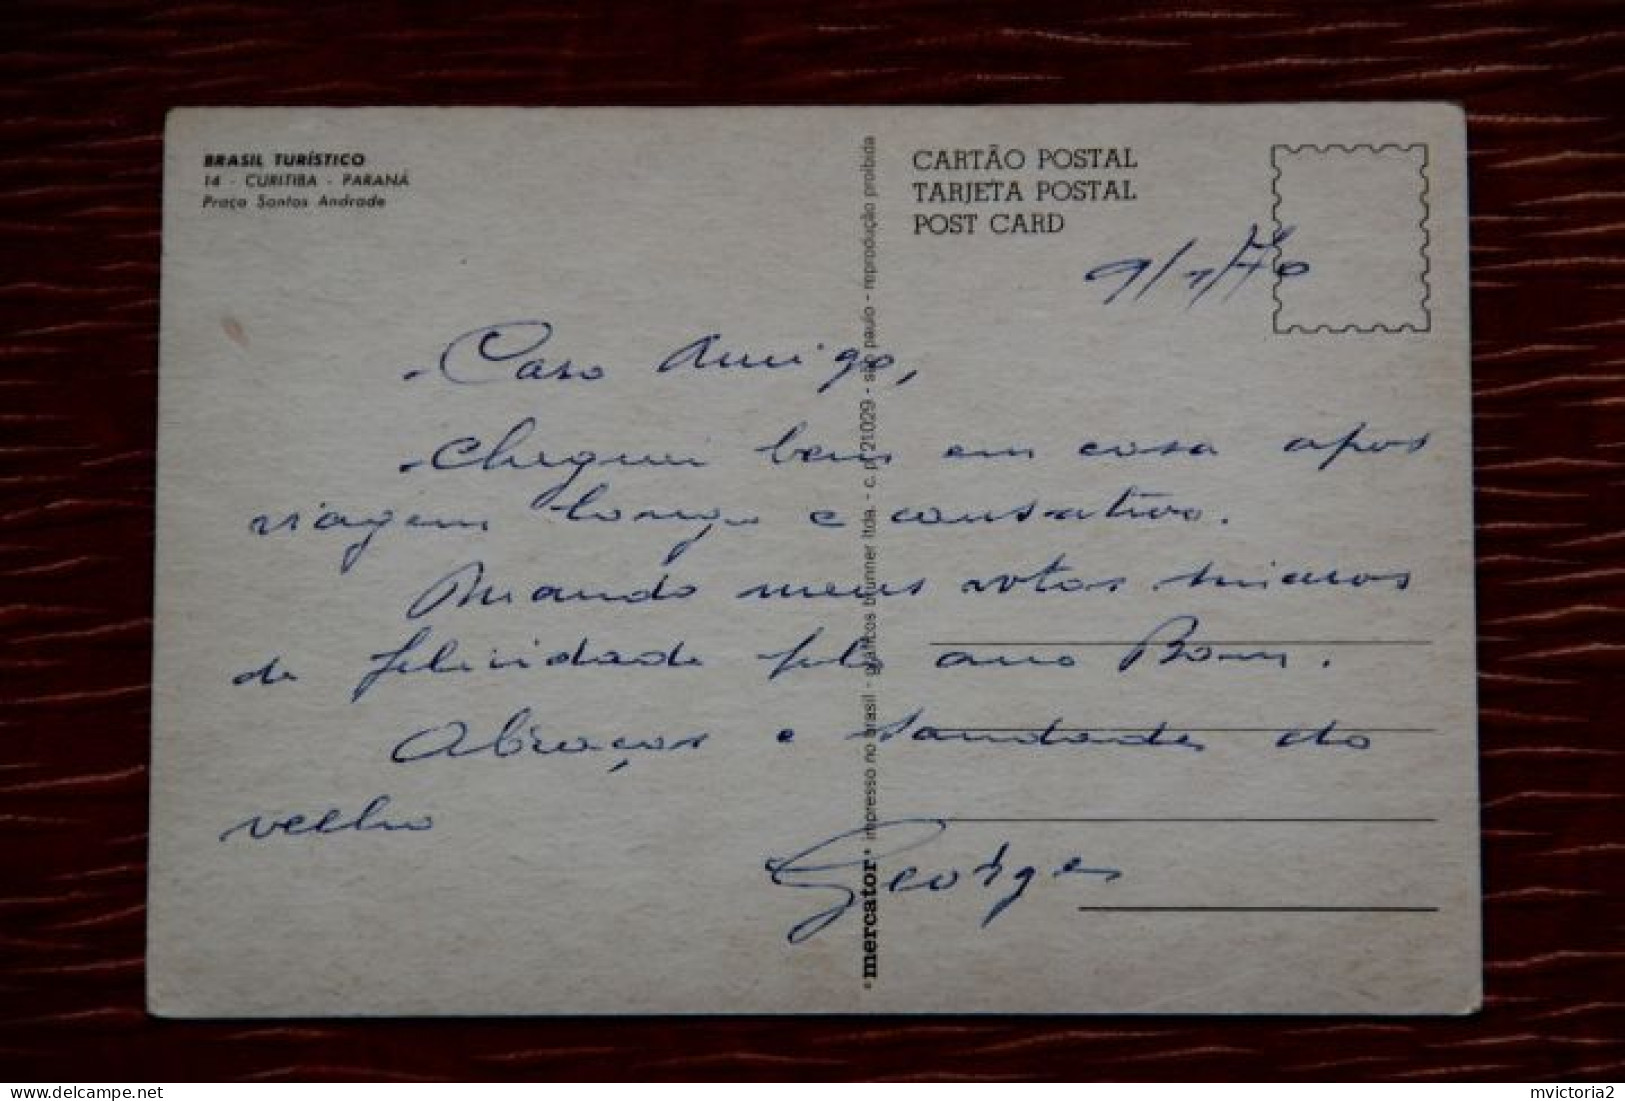 BRASIL TURÍSTICO
14 - CURITIBA - PARANÁ
Praça Santos Andrade
CARTÃO POSTAL
TARJETA POSTAL
POST CARD
9/1/70
- Caro Amigo,
- Cheguei bem em casa apos
viagem longa e cansativa.
Mando meus votos sinceros
de felicidade pelo ano Bom.
Abraços e saudades do
velho
Georges
mercator impresso no brasil - gráficos brunner ltda. - c. p. 21029 - são paulo - reprodução proibida
www.delcampe.net
mvictoria2